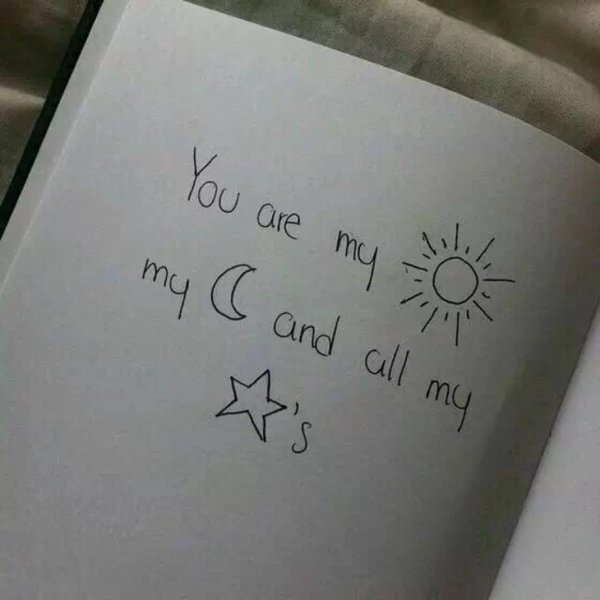 You are my ☀
my ☾ and all my
☆'s